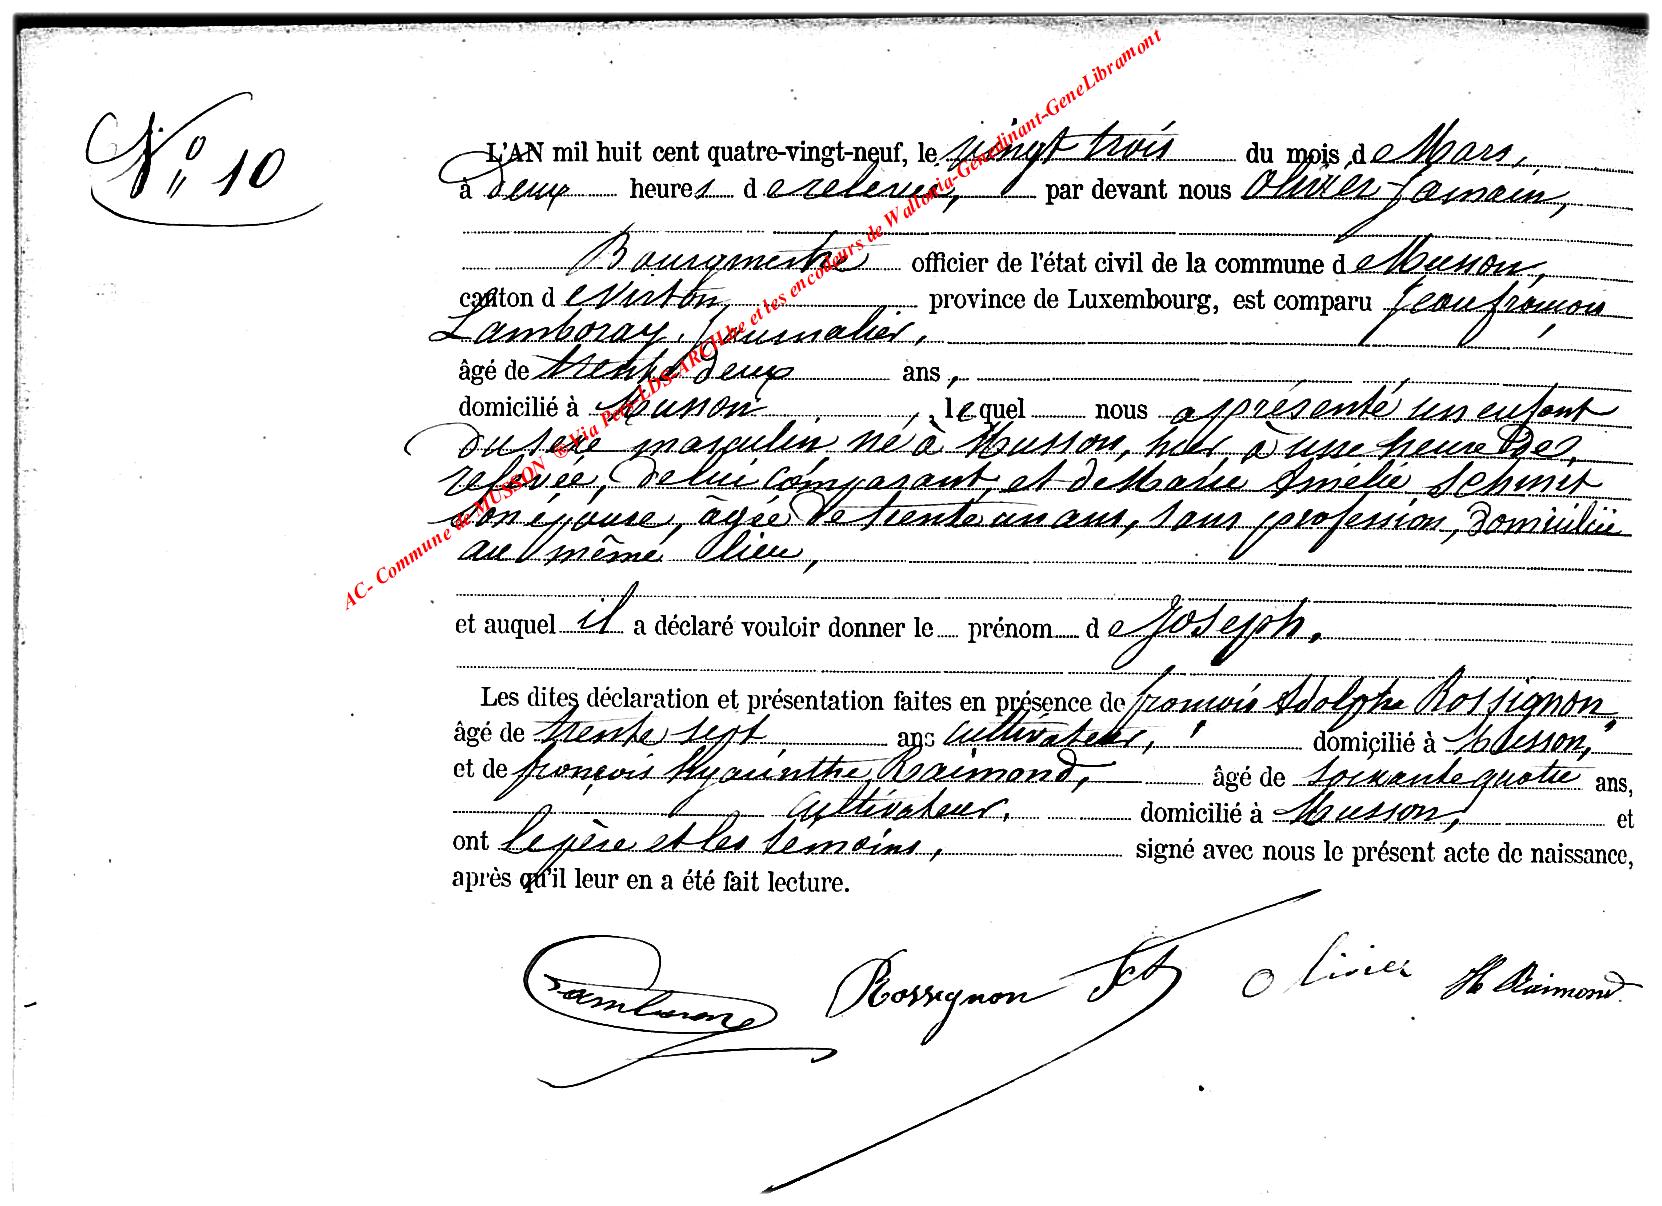 N° 10
L'AN mil huit cent quatre-vingt-neuf, le vingt trois du mois de Mars,
à deux heures de relevée, par devant nous Olivier Jamain,
Bourgmestre officier de l'état civil de la commune de Musson,
canton de Virton, province de Luxembourg, est comparu Jean françois
Lamboray, Journalier,
âgé de trente deux ans,
domicilié à Musson, lequel nous a présenté un enfant
du sexe masculin, né à Musson, hier, à une heure de
relevée, de lui comparant, et de Marie Amélie Schmit
son épouse, âgée de trente un ans, sans profession, domiciliée
au même lieu,
et auquel il a déclaré vouloir donner le prénom de Joseph,
Les dites déclaration et présentation faites en présence de françois Adolphe Rossignon,
âgé de trente sept ans cultivateur, domicilié à Musson,
et de françois hyacinthe Raimond, âgé de soixante quatre ans,
cultivateur, domicilié à Musson, et
ont le père et les témoins, signé avec nous le présent acte de naissance,
après qu'il leur en a été fait lecture.
Lamboray Rossignon Olivier H Raimond
AC- Commune de MUSSON ©Via Pers-LDS-ARCH.be et les encodeurs de Wallonia-Genedinant-GeneLibramont